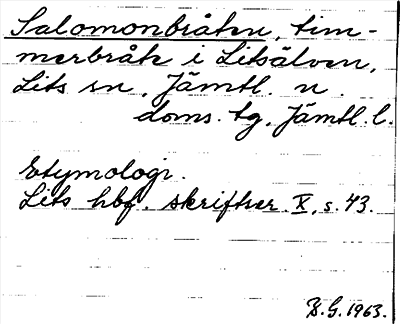 Salomonbråten, tim-
merbråte i Litsälven,
Lits sn, Jämtl. n.
doms. tg, Jämtl. l.
Etymologi.
Lits hbf. skriftser. X, s. 43.
B.G. 1963.